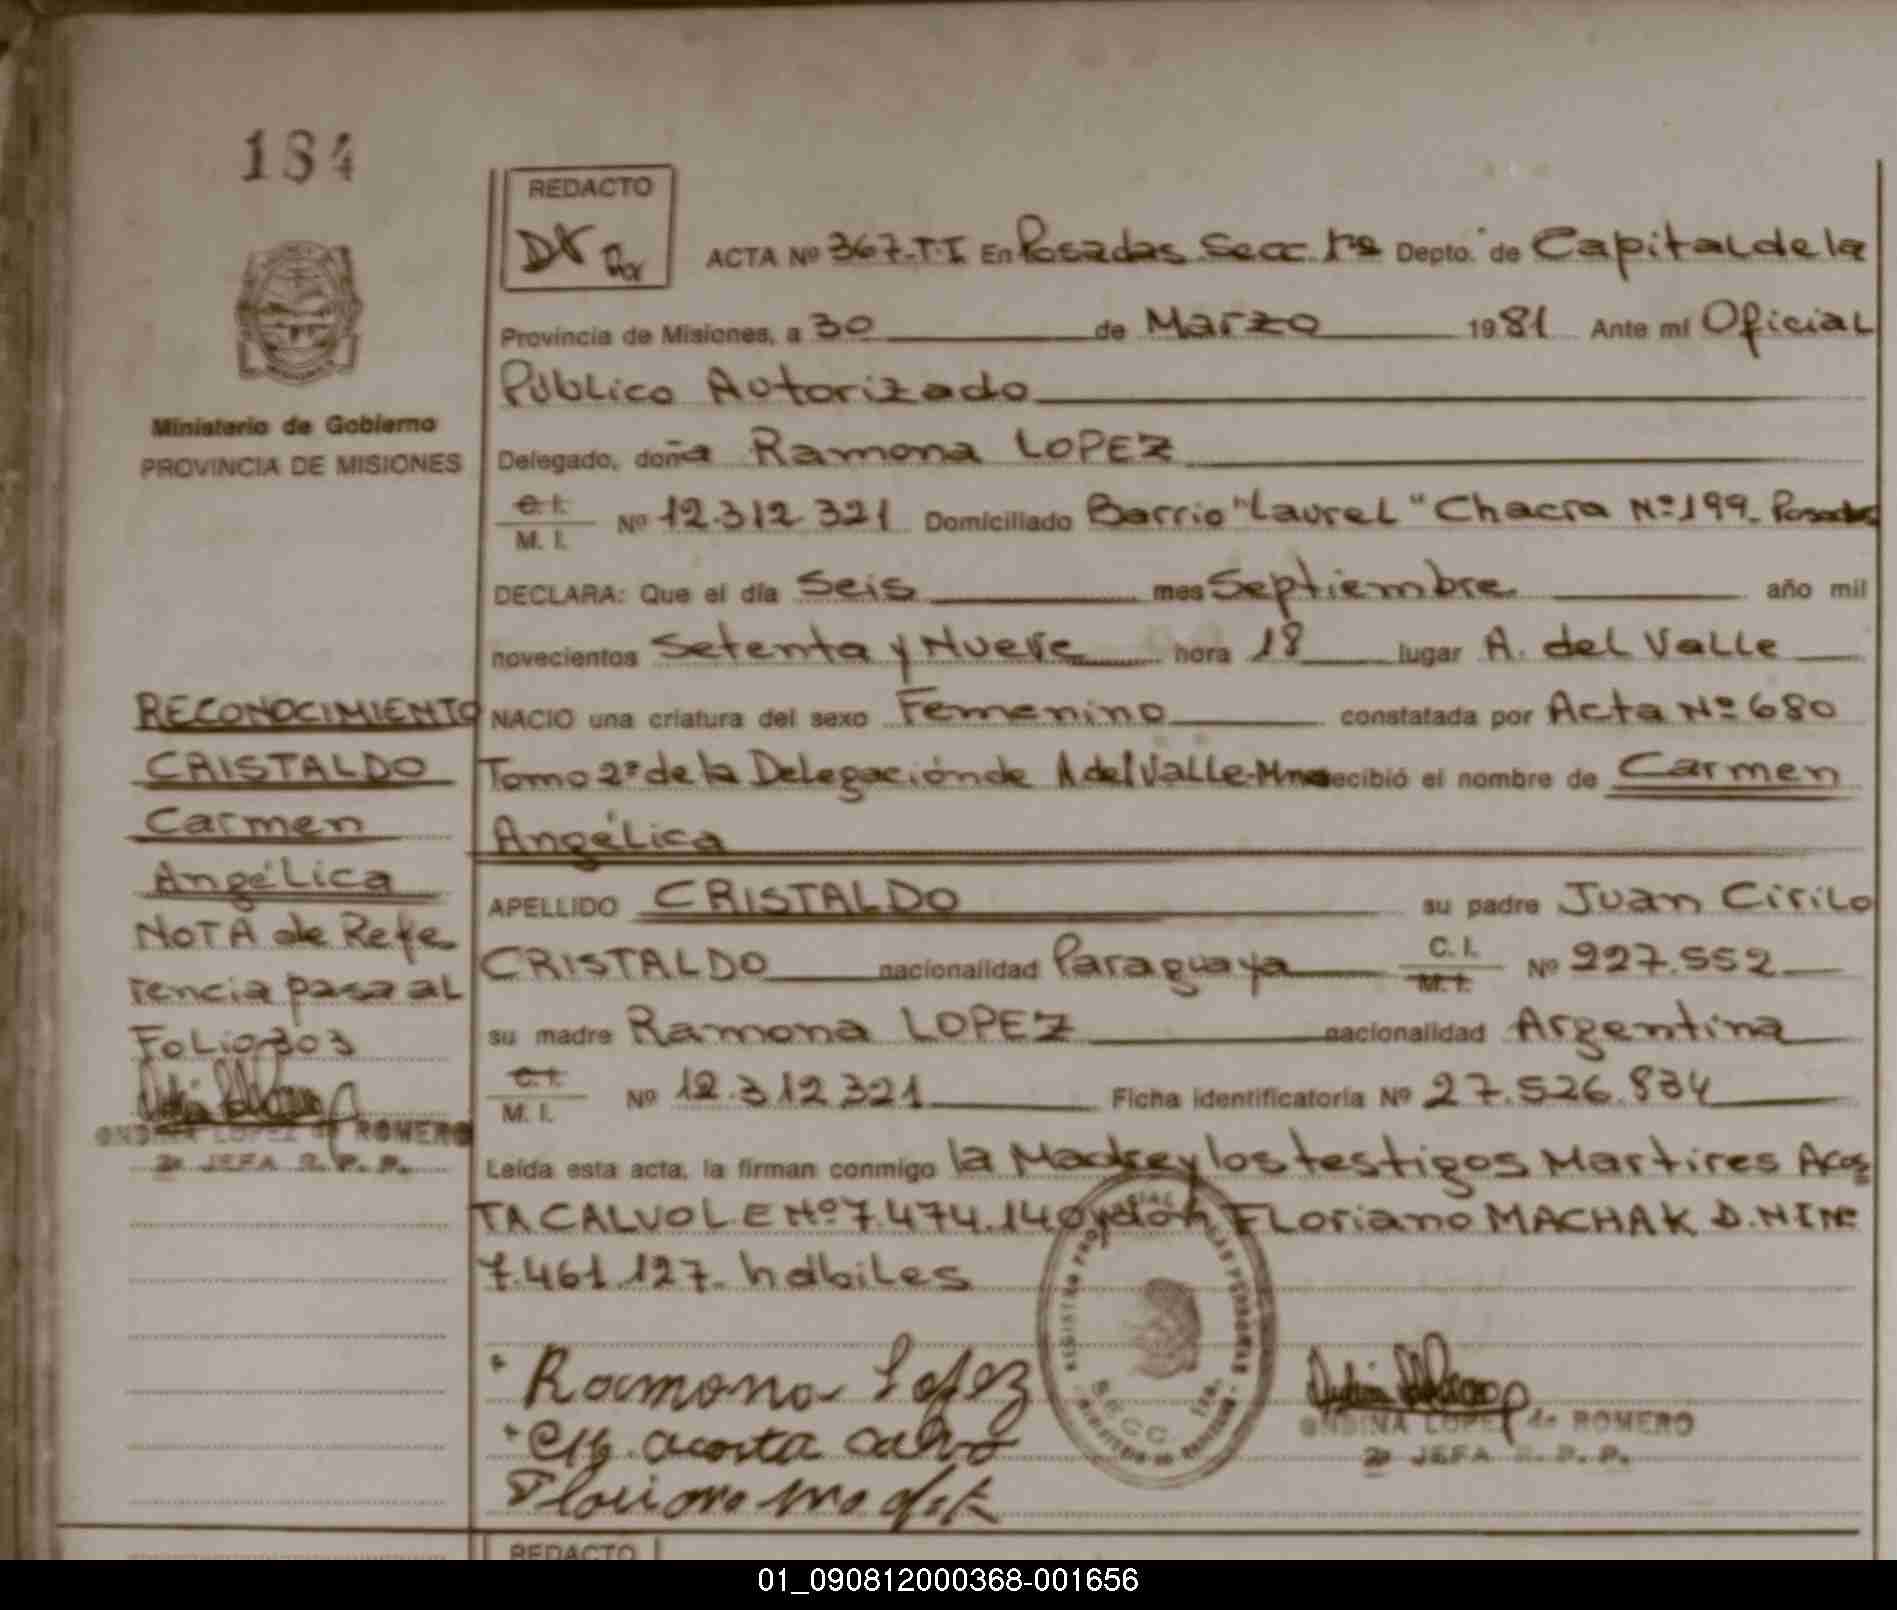 184
REDACTO
ACTA Nº 367-T.I En Posadas Secc. 1ra Depto. de Capital de la
Provincia de Misiones, a 30 de Marzo 1981 Ante mí Oficial
Público Autorizado
Ministerio de Gobierno
PROVINCIA DE MISIONES
Delegado, doña Ramona LOPEZ
C. I.
M. I.
Nº 12.312.321 Domiciliado Barrio "Laurel" Chacra Nº 199. Posadas
DECLARA: Que el día Seis mes Septiembre año mil
novecientos Setenta y Nueve hora 18 lugar A. del Valle
NACIO una criatura del sexo Femenino constatada por Acta Nº 680
Tomo 2º de la Delegación de A del Valle-Mnes recibió el nombre de Carmen
Angélica
APELLIDO CRISTALDO su padre Juan Cirilo
CRISTALDO nacionalidad Paraguaya C. I. M. I. Nº 227.552
su madre Ramona LOPEZ nacionalidad Argentina
C. I.
M. I.
Nº 12.312.321 Ficha identificatoria Nº 27.526.834
Leída esta acta, la firman conmigo la Madre y los testigos Martires Acos
TA CALVO L.E Nº 7.474.140 y don Floriano MACHAK D.N.I Nº
7.461.127. habiles
RECONOCIMIENTO
CRISTALDO
Carmen
Angélica
NOTA de Refe
rencia pasa al
Folio 303
ONDINA LOPEZ de ROMERO
2º JEFA R. P. P.
Ramona Lopez
acosta calvo
Floriano
REGISTRO PROVINCIAL DE LAS PERSONAS
SECC. 1ra.
ONDINA LOPEZ de ROMERO
2º JEFA R. P. P.
REDACTO
01_090812000368-001656